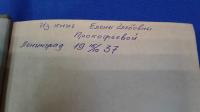 Из книг Елены Глебовны
Прокофьевой
Ленинград 19 37